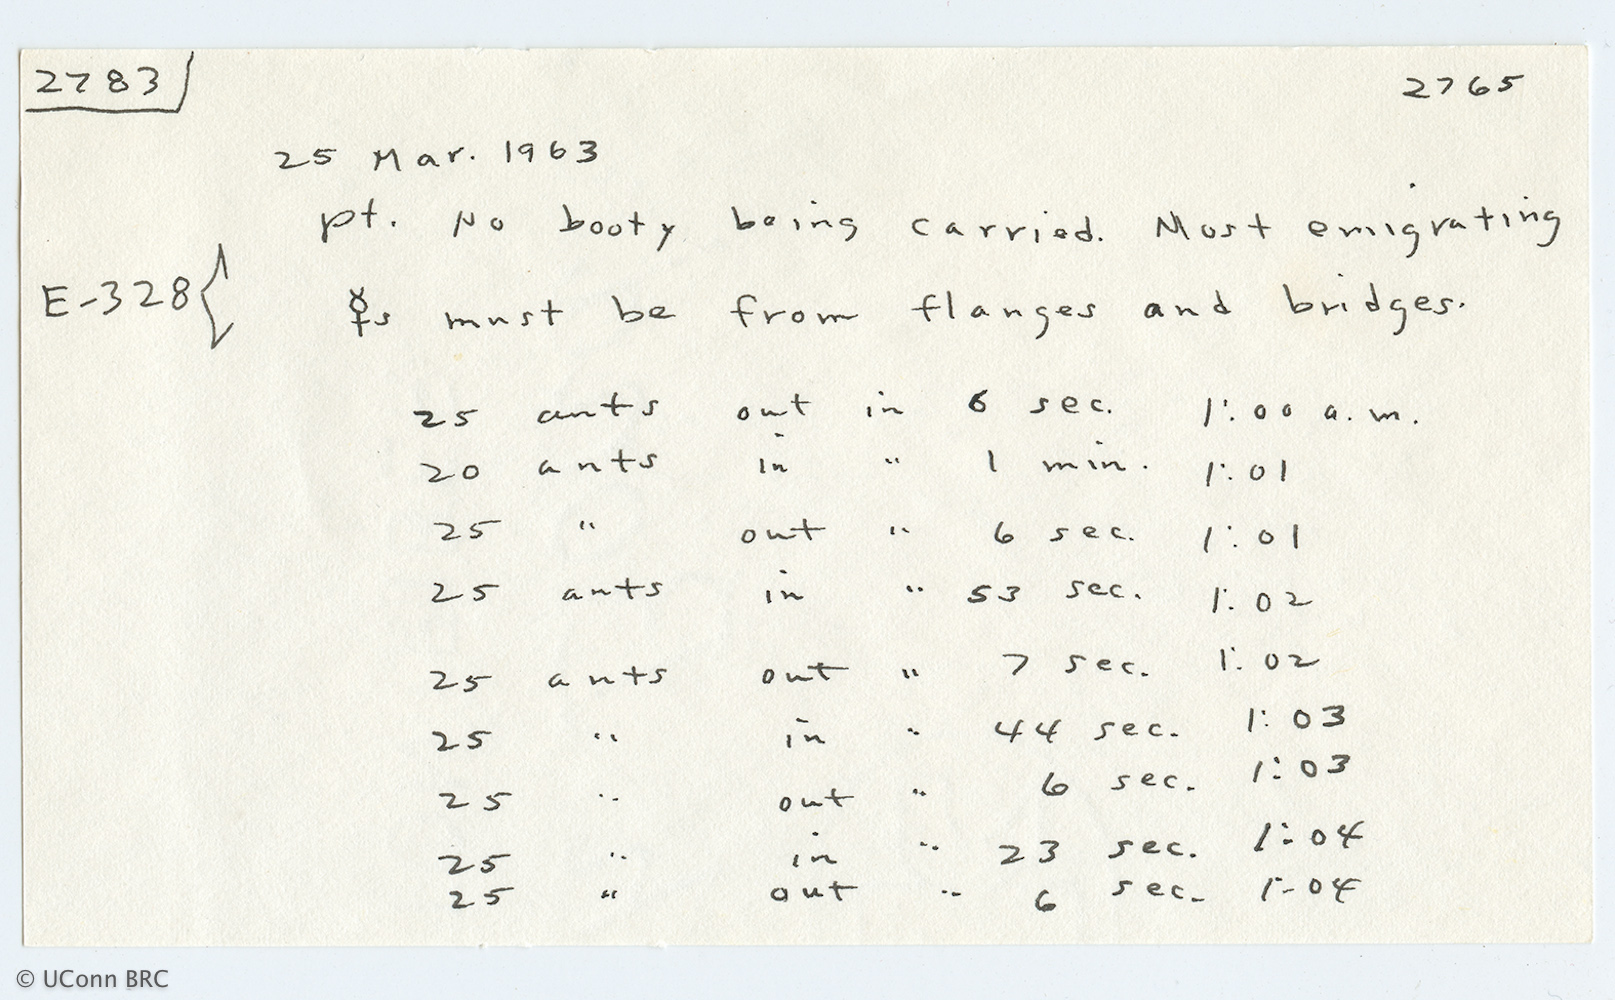 2783
2765
25 Mar. 1963
pt. No booty being carried. Most emigrating
E-328 { ☿s must be from flanges and bridges.
25 ants out in 6 sec. 1:00 a.m.
20 ants in " 1 min. 1:01
25 " out " 6 sec. 1:01
25 ants in " 53 sec. 1:02
25 ants out " 7 sec. 1:02
25 " in " 44 sec. 1:03
25 " out " 6 sec. 1:03
25 " in " 23 sec. 1:04
25 " out " 6 sec. 1:04
© UConn BRC